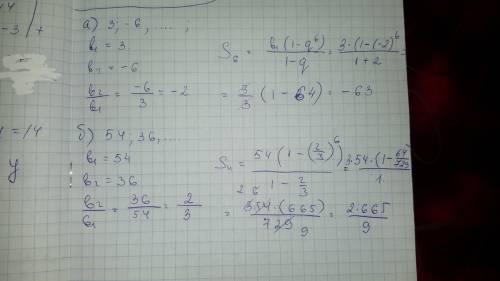 14
-3 | +
1 = 14
y
а) 3; -6, ....;
b₁ = 3
b₂ = -6
b₂/b₁ = -6/3 = -2
S₆ = b₁(1-q⁶)/1-q = 3·(1-(-2)⁶/1+2 =
= 3/3 (1-64) = -63
б) 54; 36, ....
b₁ = 54
b₂ = 36
b₂/b₁ = 36/54 = 2/3
S₄ = 54(1-(2/3)⁶)/1-2/3 = 3·54·(1-64/729/1.
= 354·(665)/729 9 = 2·665/9